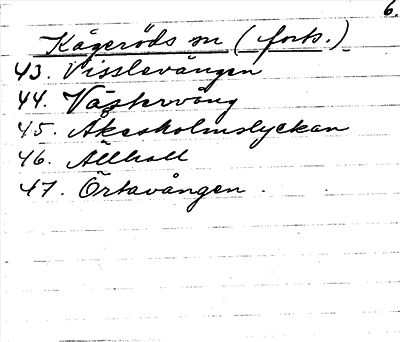 6.
Kågeröds sn (forts.)
43. Visslevången
44. Västervång
45. Åkesholmslyckan
46. Ällhall
47. Örtavången.